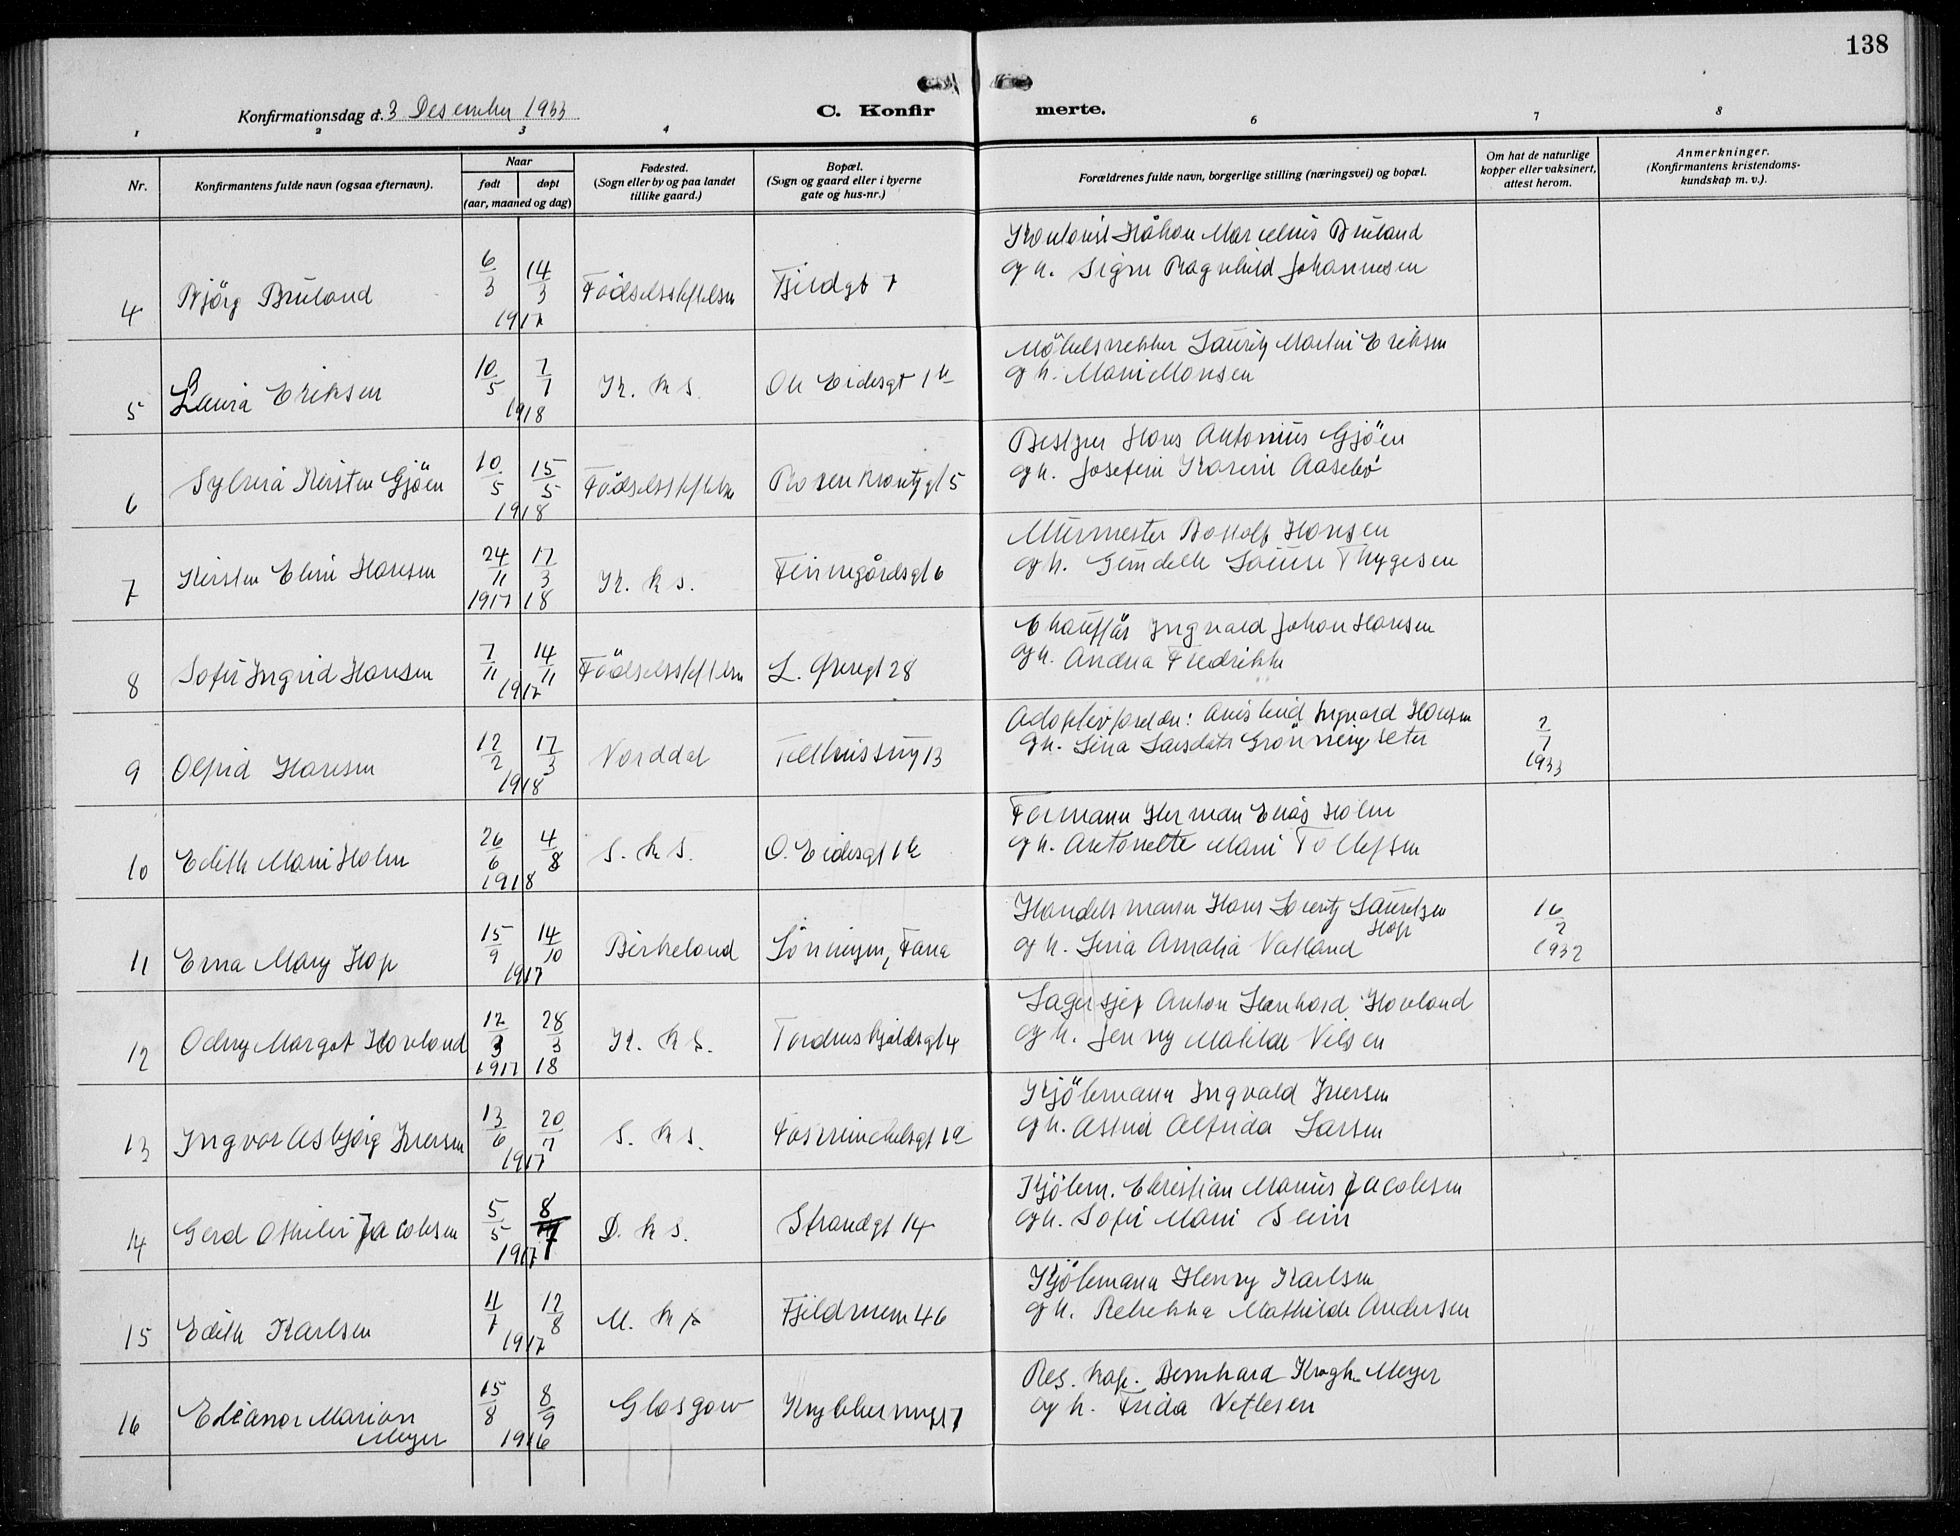 138
Konfirmationsdag d. 3 Desember 1933
C. Konfirmerte.
1 2 3 4 6 7 8
Nr.
Konfirmantens fulde navn (ogsaa efternavn).
Naar
født døpt
(aar, maaned og dag)
Fødested.
(Sogn eller by og paa landet
tillike gaard.)
Bopæl.
(Sogn og gaard eller i byerne
gate og hus-nr.)
Forældrenes fulde navn, borgerlige stilling (næringsvei) og bopæl.
Om hat de naturlige
kopper eller vaksinert,
attest herom.
Anmerkninger.
(Konfirmantens kristendoms-
kundskap m. v.).
4 Björg Bruland 6/3 14/3 1917 Födselsstiftelsen Fjeldgt 7
Kontorist Håkon Marselius Bruland
og h. Signe Ragnhild Johannesen
5 Laura Eriksen 10/5 7/7 1918 K. k s. O. Eidesgt 1
Möbelsnekker Lauritz Martin Eriksen
og h. Marie Monsen
6 Sylvia Kirsten Gjöen 10/5 15/5 1918 Födselsstiftelsen Rosenkrantzgt 5
Bestyrer Hans Antonius Gjöen
og h. Josefine Karine Aasebö
7 Kirsten Elini Hansen 24/11 1917 17/3 18 K. k s. Finnegårdsgt 6
Murmester Bottolf Hansen
og h. Laura Thygesen
8 Sofie Ingrid Hansen 7/11 14/11 1917 Födselsstiftelsen L. Øvregt 28
Chauffør Ingvald Johan Hansen
og h. Andrea Fredrikke
9 Olfrid Hansen 12/2 17/3 1918 Norddal Tollbusmug 13
Adoptivforeldre: Ingvald Hansen
og h. Lina Larsdatr Grönningseter
2/7 1933
10 Edith Marie Holm 26/6 4/8 1918 S. k s. O. Eidesgt 1
Formann Herman Enås Holm
og h. Antonette Marie Tollefsen
11 Erna Mary Hop 15/9 14/10 1917 Birkeland Löningen, Fana
Handelsmann Hans Lorentz Lauritzen
Hop
og h. Lina Amalia Vatland
16/2 1932
12 Odny Margot Hovland 12/3 1917 28/3 18 K. k s. Tordenskjoldsgt 4
Lagersjef Anton Lenhard Hovland
og h. Jenny Matilde Nilsen
13 Ingvar Asbjörg Iversen 13/6 20/7 1917 S. k s. Foswinckelsgt
Kjöbmann Ingvald Iversen
og h. Astrid Alfrida Larsen
14 Gerd Othilie Jacobsen 5/5 8/7 1917 D. k s. Strandgt 14
Kjöbm. Christian Marius Jacobsen
og h. Sofie Marie
15 Edith Karlsen 11/7 12/8 1917 M. k Fjeldveien 46
Kjöbmann Henry Karlsen
og h. Rebekka Mathilde Andersen
16 Eleanor Marion
Meyer 15/8 8/9 1916 Glasgow
Res. kap. Bernhard Krogh Meyer
og h. Frida Vetlesen